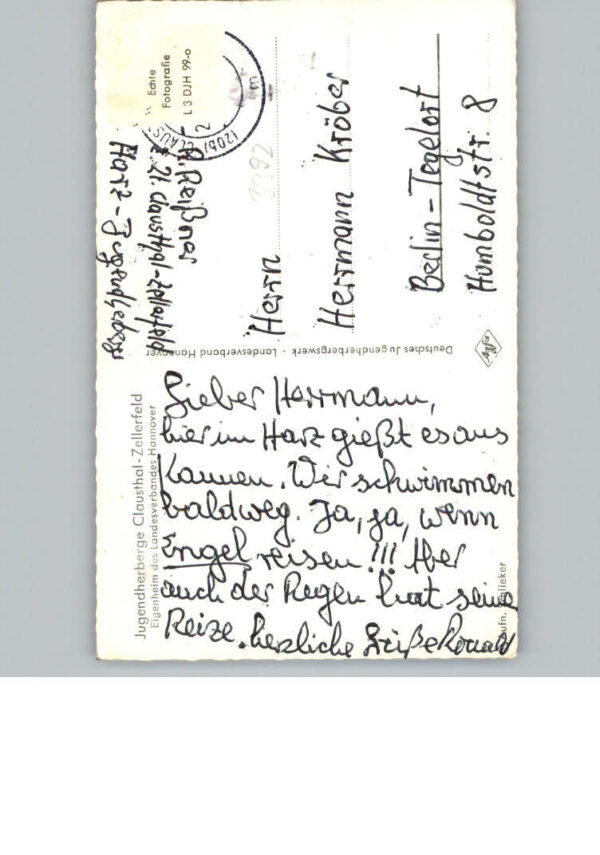 Jugendherberge Clausthal-Zellerfeld
Eigenheim des Landesverbandes Hannover
Lieber Herrmann,
hier im Harz gießt es aus
Kannen. Wir schwimmen
bald weg. Ja, ja, wenn
Engel reisen!!! Aber
auch der Regen hat seine
Reize. herzliche Grüße Ronald
Deutsches Jugendherbergswerk - Landesverband Hannover
Echte
Fotografie
L 3 DJH 99-o
R. Reißner
z. Zt. Clausthal-Zellerfeld
Harz-Jugendheberge
Herrn
Herrmann Kröber
Berlin-Tegelort
Humboldtstr. 8
Aufn.